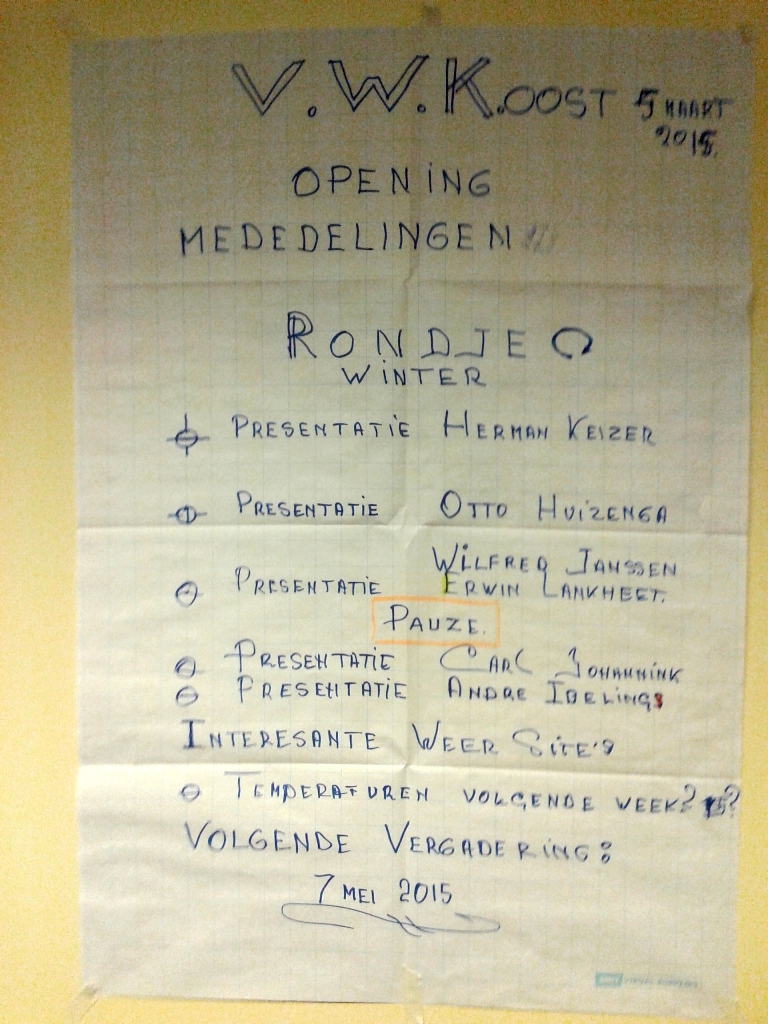 V.W.K. OOST 5 MAART
2015.
OPENING
MEDEDELINGEN
RONDJE
WINTER
PRESENTATIE HERMAN KEIZER
PRESENTATIE OTTO HUIZENGA
PRESENTATIE WILFRED JANSSEN
ERWIN LANKHEET.
PAUZE.
PRESENTATIE CARL JOHANNINK
PRESENTATIE ANDRE IBELINGS
INTERESANTE WEER SITE'S
TEMPERATUREN VOLGENDE WEEK? ?
VOLGENDE VERGADERING:
7 MEI 2015